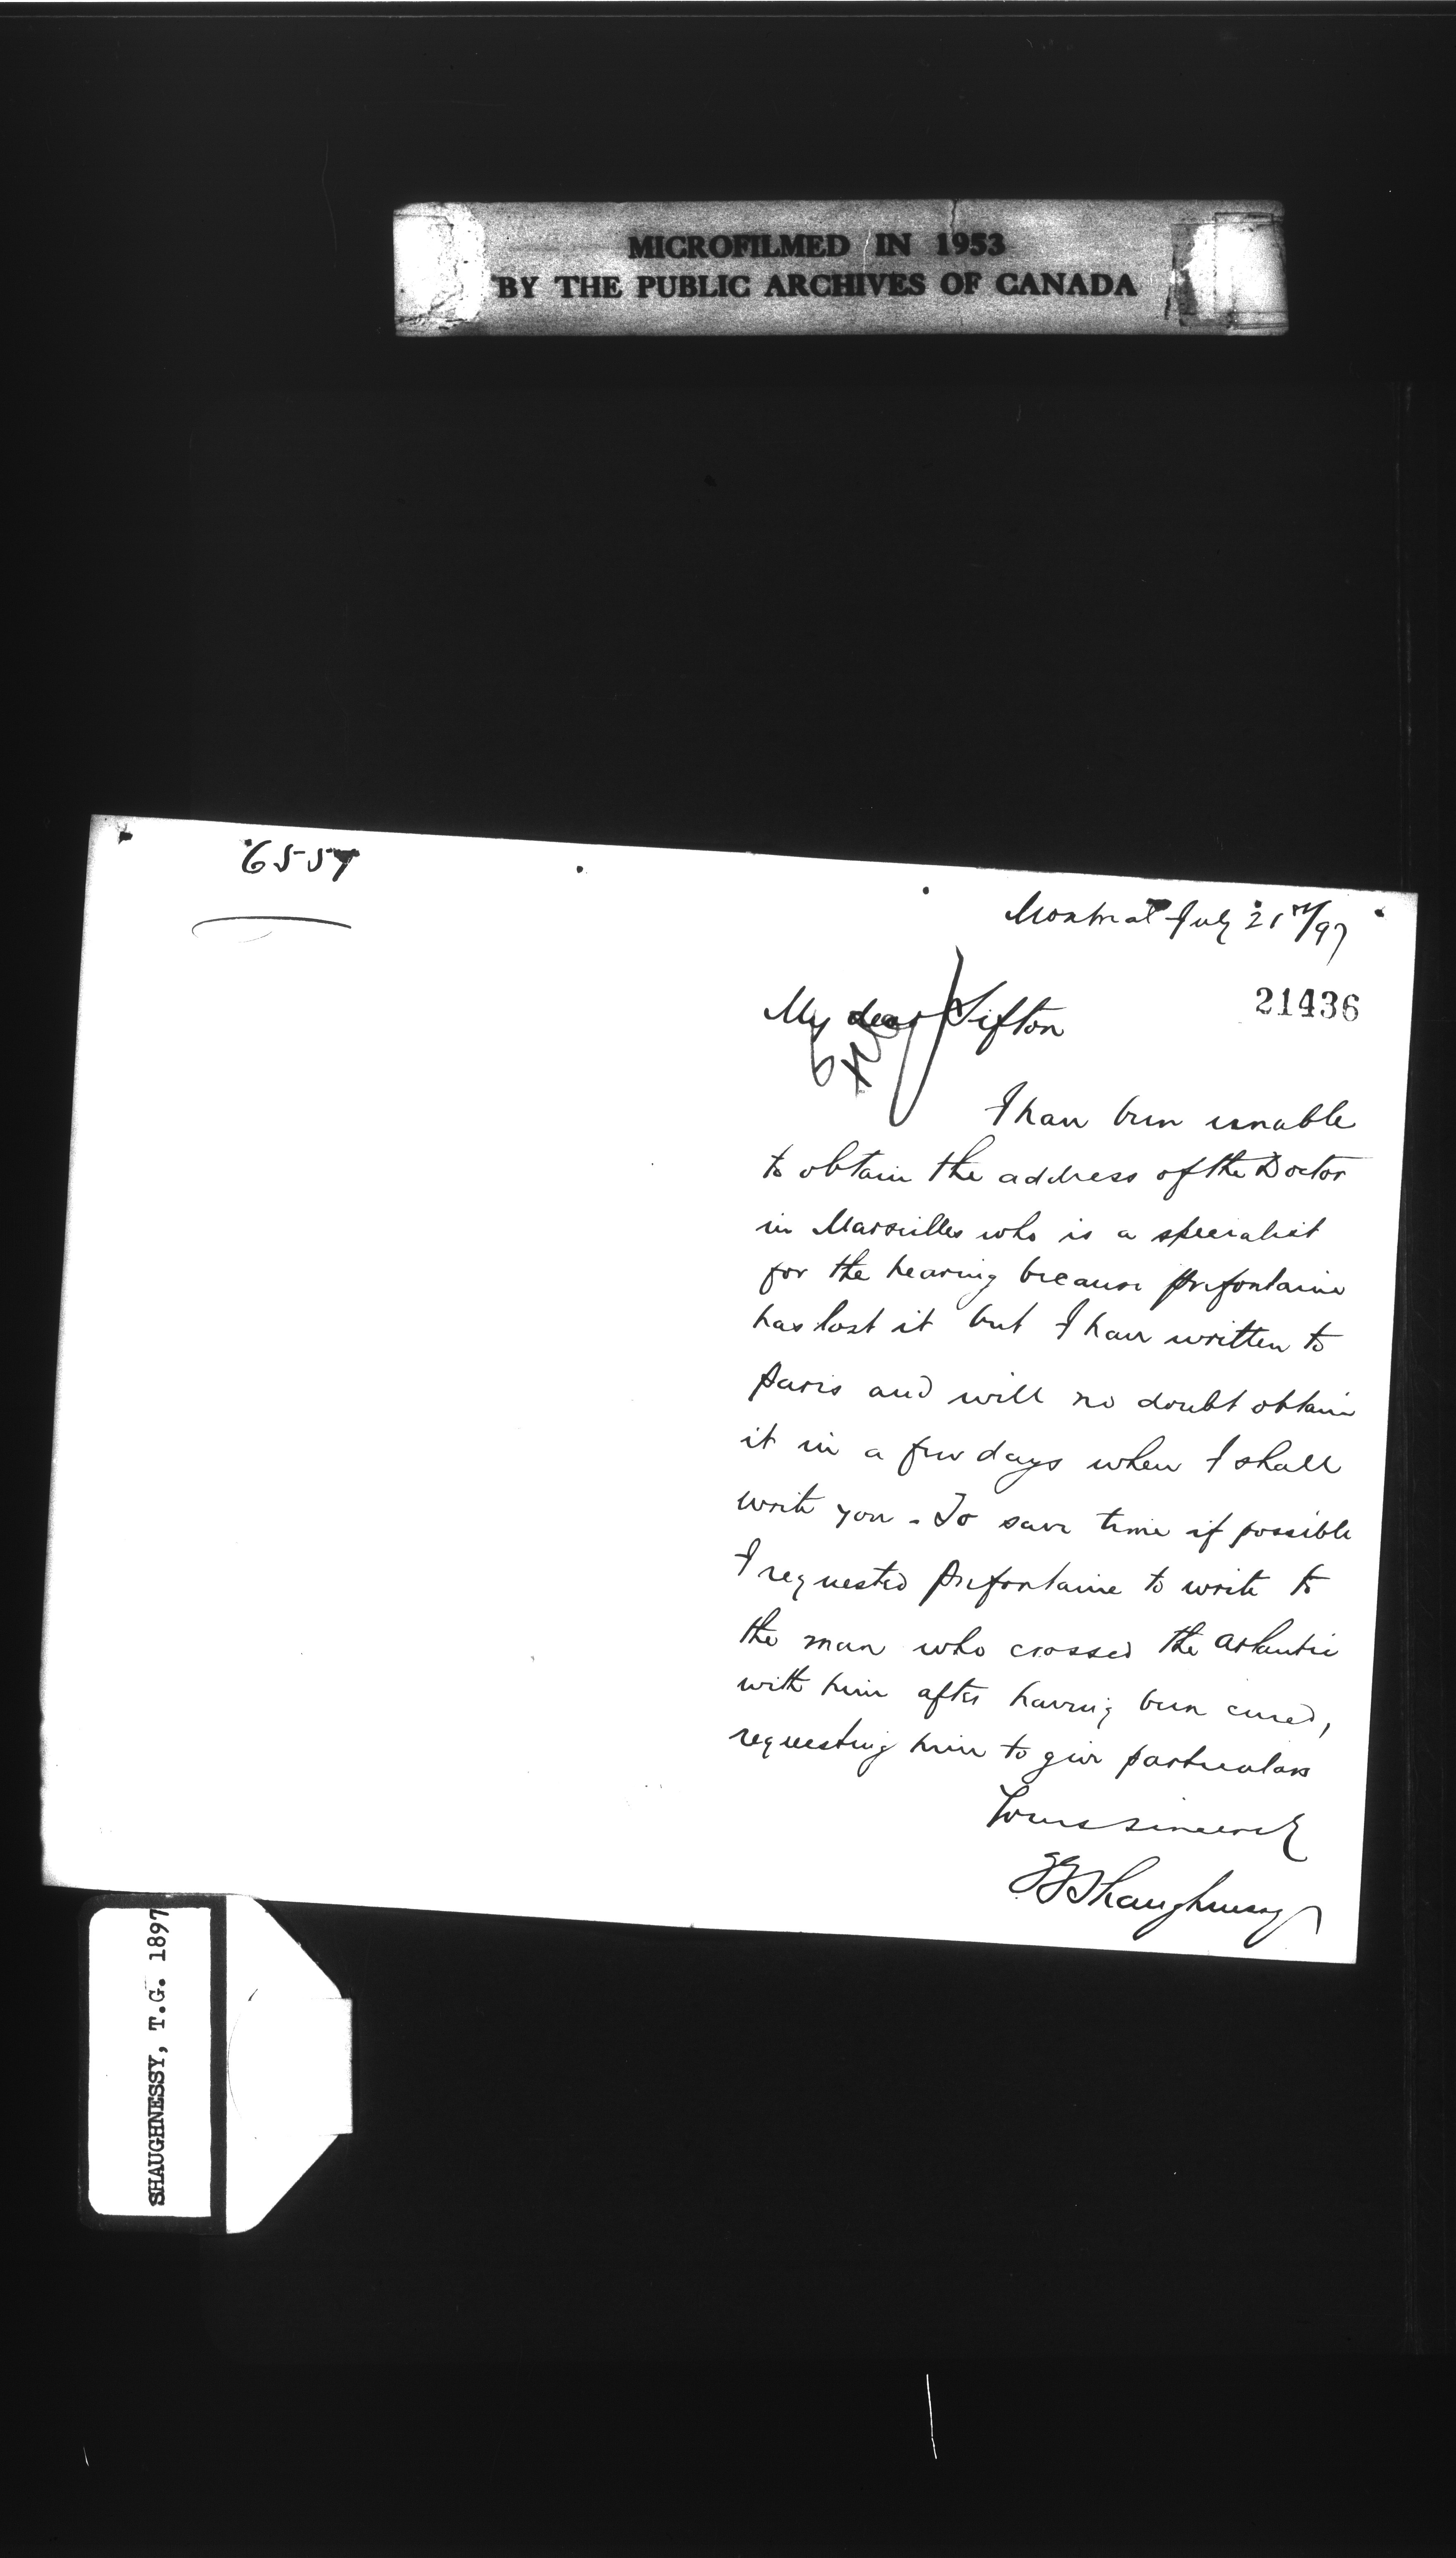 MICROFILMED IN 1953
BY THE PUBLIC ARCHIVES OF CANADA
6557
Montreal July 21st/97
21436
My dear Sifton
I have been unable
to obtain the address of the Doctor
in Marseilles who is a specialist
for the hearing because Prefontaine
has lost it but I have written to
Paris and will no doubt obtain
it in a few days when I shall
write you - To save time if possible
I requested Prefontaine to write to
the man who crossed the Atlantic
with him after having been cured,
requesting him to give particulars
Yours sincerely
TGShaughnessy
SHAUGHNESSY, T.G. 1897